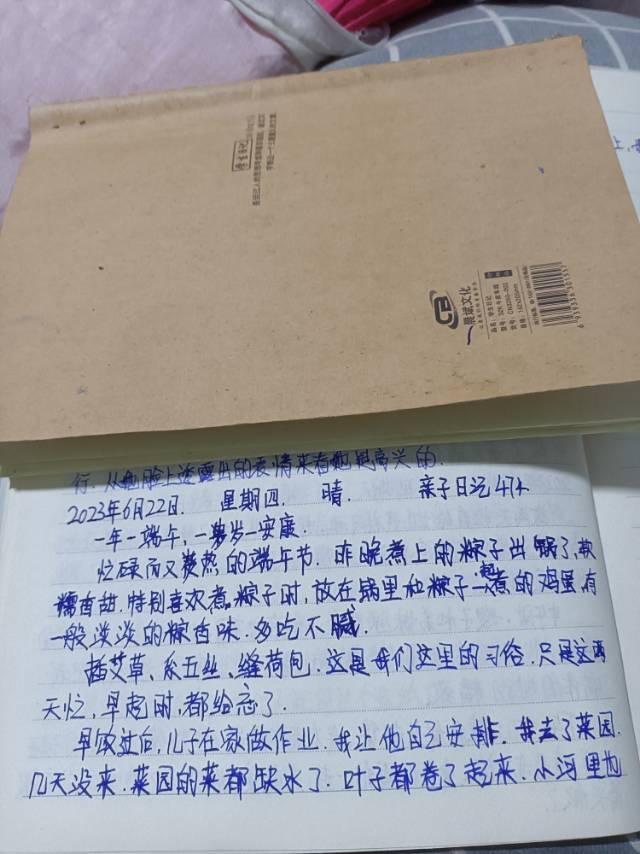 学生日记
晨诚文化
行.从她脸上透露出的表情来看她是高兴的.
2023年6月22日. 星期四. 晴. 亲子日记47木
一年一端午,一岁一安康.
忙碌而又炎热的端午节.昨晚煮上的粽子出锅了,软
糯香甜.特别喜欢煮粽子时,放在锅里和粽子一起煮的鸡蛋,有
一股淡淡的粽香味.多吃不腻.
插艾草、系五丝、缝荷包.这是我们这里的习俗.只是这两
天忙,早起时,都给忘了.
早饭过后,儿子在家做作业.我让他自己安排.我去了菜园.
几天没来.菜园的菜都缺水了.叶子都卷了起来.小河里也